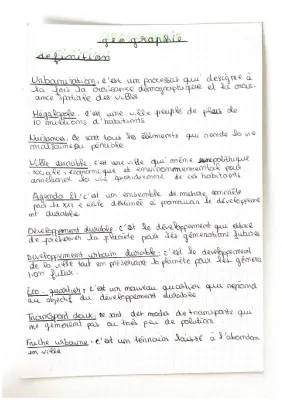 géographie
définition
Urbanisation : c'est un processus qui désigne à
la fois la croissance démographique et la crois-
ance spatiale des villes
Mégalopole : c'est une ville peuplé de plus de
10 millions d'habitants
Nuisances : Ce sont tous les éléments qui rende la vie
Ville durable : c'est une ville qui mène politique
sociale, économique et environnemental pour
améliorer la vie quotidienne de ces habitants
Agenda 21 : c'est un ensemble de mesure
par destinés à promouvoir le développeme
nt durable
Développement durable : c'est le développement qui essaie
de préserver la planète pour les générations futures
Développement urbain durable : c'est le développement
de la ville tout en préservant la planète pour les généra
tion futur.
Eco-quartier : c'est un nouveau quartier qui répond
au objectif du développement durable
Transport doux : ce sont des modes de transports qui
ne génèrent pas ou très peu de pollution
Friche urbaine : c'est un terrain laissé à l'abandon
en ville